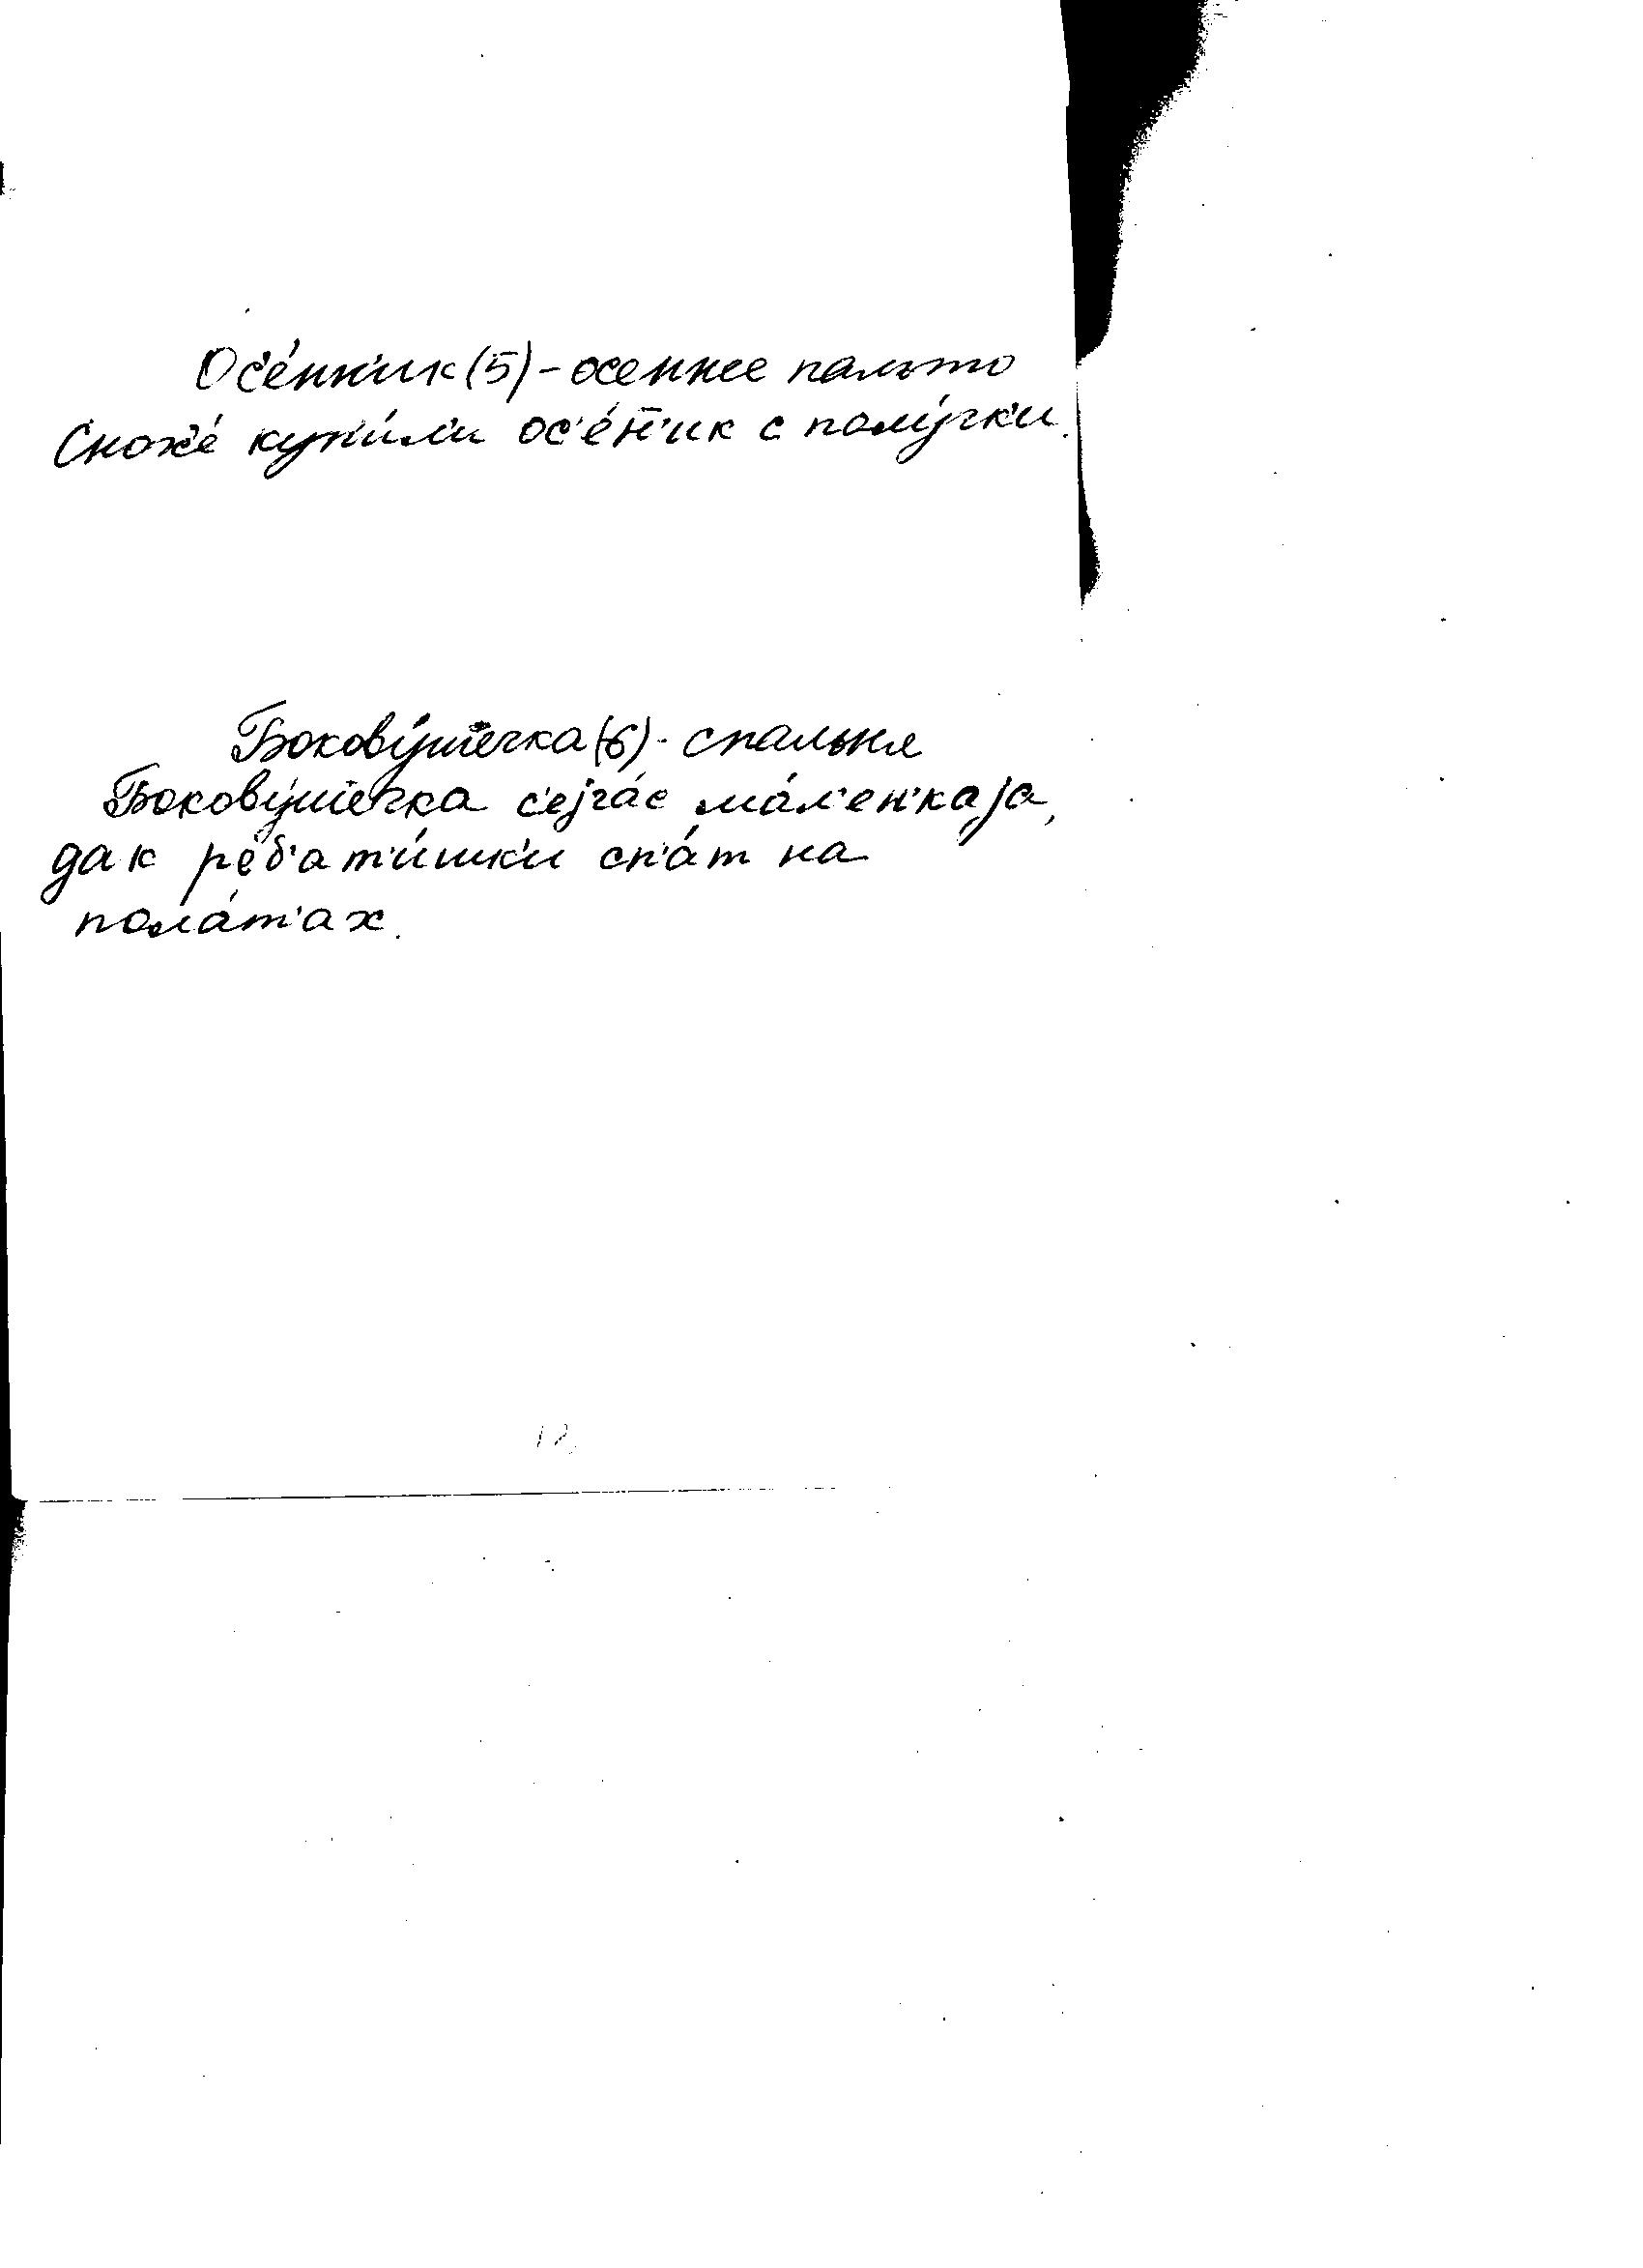 Ос'е́нн'ик (5) - осеннее пальто
Снох'е́ куп'и́л'и ос'е́н̄'ик с полу́чк'и.
Боковӳ́шечка (6) - спальня
Боковӳ́шечка с'еjча́с ма́л'ен'каjа,
дак р'еб'ат'и́шк'и сп'а́т на
пола́т'ах.
12